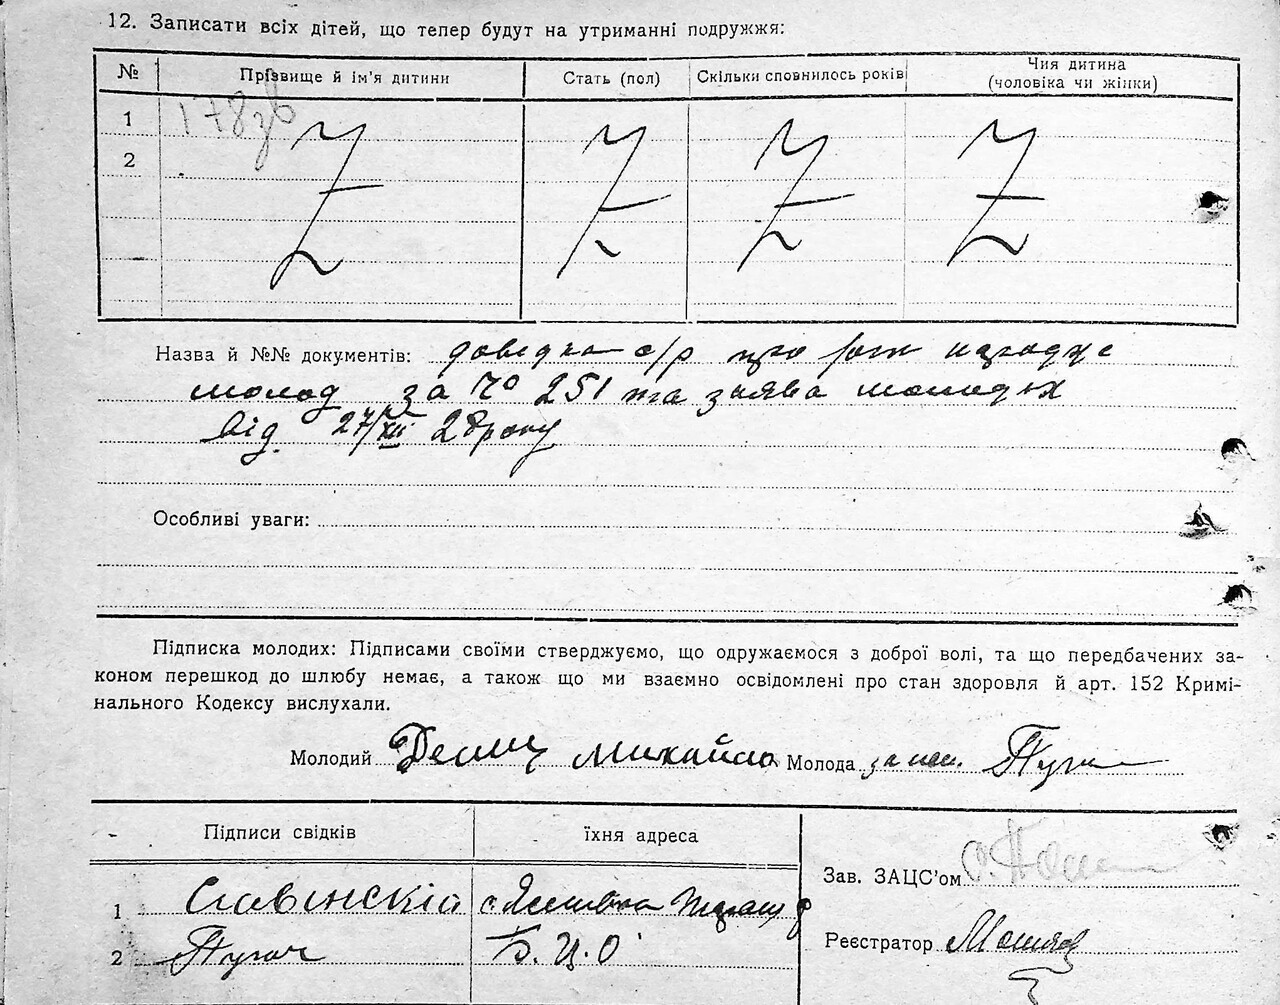 12. Записати всіх дітей, що тепер будут на утриманні подружжя:
№ Прізвище й ім'я дитини Стать (пол) Скільки сповнилось років Чия дитина (чоловіка чи жінки)
1 178зв
2
Назва й №№ документів: довідка с/р про
молод за № 251 та заява молодих
від 27/XII 28 року
Особливі уваги:
Підписка молодих: Підписами своїми стверджуємо, що одружаємося з доброї волі, та що передбачених за-
коном перешкод до шлюбу немає, а також що ми взаємно освідомлені про стан здоровля й арт. 152 Кримі-
нального Кодексу вислухали.
Молодий Михайло Молода за неп. Пугач
Підписи свідків їхня адреса
Зав. ЗАЦС'ом
1 Славінскій с.
2 Пугач Б. Ц. О
Реєстратор